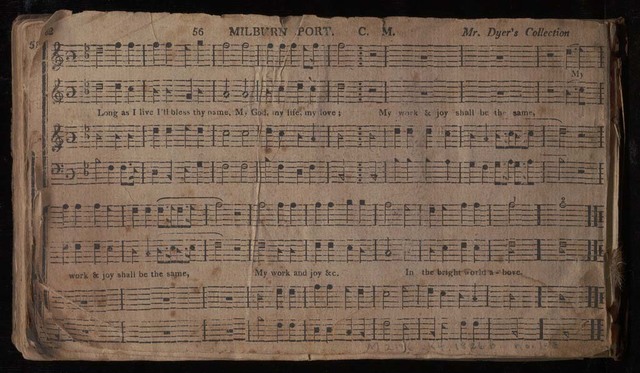 56 MILBURN PORT. C. M. Mr. Dyer's Collection
My
Long as I live I'll bless thy name, My God, my life, my love; My work & joy shall be the same,
work & joy shall be the same, My work and joy &c. In the bright world a-bove.